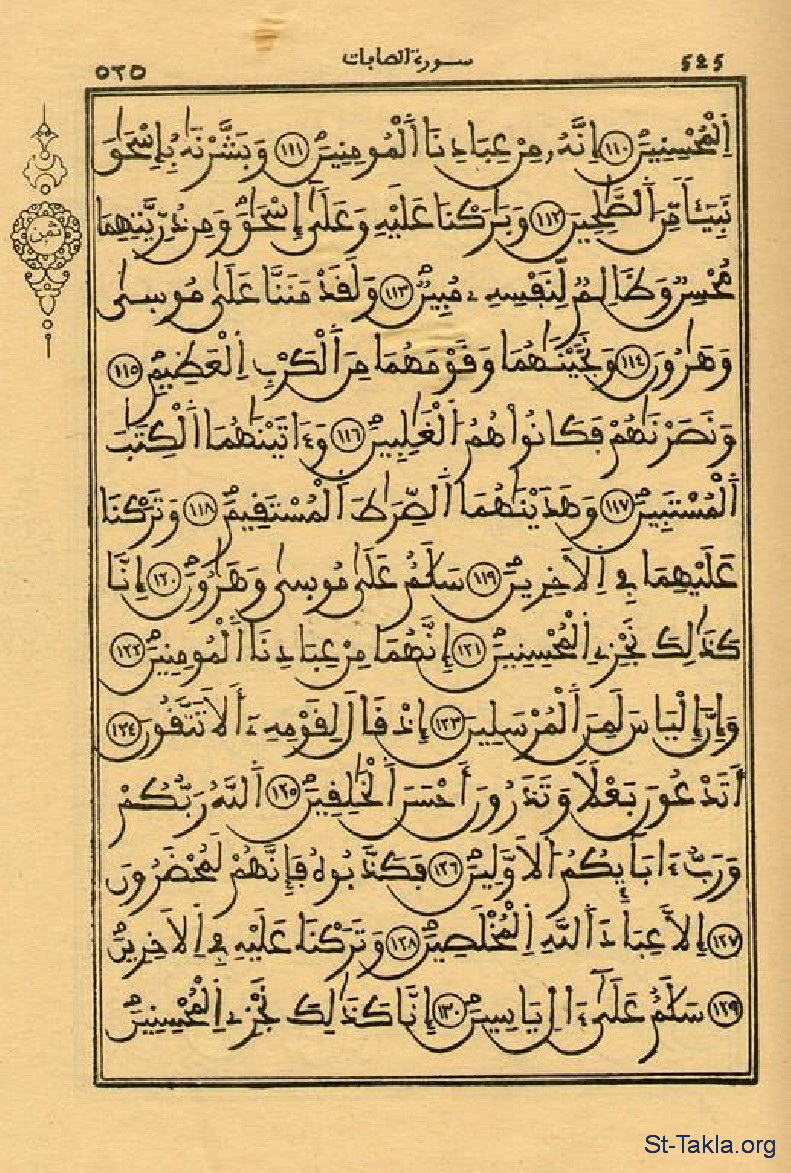 525 سورة الصافات ٥٢٥
اِ۬لْمُحْسِنِينَ ١١٠ إِنَّهُۥ مِنْ عِبَادِنَا اَ۬لْمُومِنِينَ ١١١ وَبَشَّرْنَٰهُ بِإِسْحَٰقَ
نَبِيـَٔاٗ مِّنَ اَ۬لصَّٰلِحِينَ ١١٢ وَبَٰرَكْنَا عَلَيْهِ وَعَلَىٰٓ إِسْحَٰقَ وَمِن ذُرِّيَّتِهِمَا
مُحْسِنٞ وَظَالِمٞ لِّنَفْسِهِۦ مُبِينٞ ١١٣ وَلَقَدْ مَنَنَّا عَلَىٰ مُوسِىٰ
وَهَٰرُونَ ١١٤ وَنَجَّيْنَٰهُمَا وَقَوْمَهُمَا مِنَ اَ۬لْكَرْبِ اِ۬لْعَظِيمِ ١١٥
وَنَصَرْنَٰهُمْ فَكَانُوا۟ هُمُ اُ۬لْغَٰلِبِينَ ١١٦ وَءَاتَيْنَٰهُمَا اَ۬لْكِتَٰبَ
اَ۬لْمُسْتَبِينَ ١١٧ وَهَدَيْنَٰهُمَا اَ۬لصِّرَٰطَ اَ۬لْمُسْتَقِيمَ ١١٨ وَتَرَكْنَا
عَلَيْهِمَا فِے اِ۬لَاخِرِينَ ١١٩ سَلَٰمٌ عَلَىٰ مُوسِىٰ وَهَٰرُونَ ١٢٠ إِنَّا
كَذَٰلِكَ نَجْزِے اِ۬لْمُحْسِنِينَ ١٢١ إِنَّهُمَا مِنْ عِبَادِنَا اَ۬لْمُومِنِينَ ١٢٢
وَإِنَّ إِلْيَاسَ لَمِنَ اَ۬لْمُرْسَلِينَ ١٢٣ إِذْ قَالَ لِقَوْمِهِۦٓ أَلَا تَتَّقُونَ ١٢٤
أَتَدْعُونَ بَعْلٗا وَتَذَرُونَ أَحْسَنَ اَ۬لْخَٰلِقِينَ ١٢٥ اَ۬للَّهُ رَبُّكُمْ
وَرَبُّ ءَابَآئِكُمُ اُ۬لَاوَّلِينَ ١٢٦ فَكَذَّبُوهُ فَإِنَّهُمْ لَمُحْضَرُونَ
١٢٧ إِلَّا عِبَادَ اَ۬للَّهِ اِ۬لْمُخْلَصِينَ ١٢٨ وَتَرَكْنَا عَلَيْهِ فِے اِ۬لَاخِرِينَ
١٢٩ سَلَٰمٌ عَلَىٰٓ ءَالِ يَاسِينَ ١٣٠ إِنَّا كَذَٰلِكَ نَجْزِے اِ۬لْمُحْسِنِينَ
ثمن
St-Takla.org